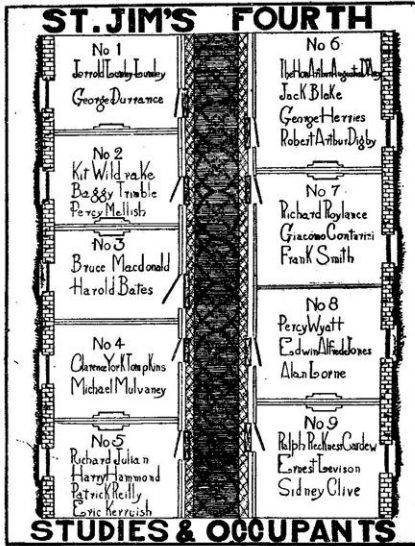 ST. JIM'S FOURTH
No 1
Jerrold Lumley-Lumley
George Durrance
No 2
Kit Wildrake
Baggy Trimble
Percy Mellish
No 3
Bruce Macdonald
Harold Bates
No 4
Clarence York Tompkins
Michael Mulvaney
No 5
Richard Julian
Harry Hammond
Patrick Reilly
Eric Kerruish
No 6
The Hon Arthur Augustus D'Arcy
Jack Blake
George Herries
Robert Arthur Digby
No 7
Richard Roylance
Giacomo Contarini
Frank Smith
No 8
Percy Wyatt
Edwin Alfred Jones
Alan Lorne
No 9
Ralph Reckness Cardew
Ernest Levison
Sidney Clive
STUDIES & OCCUPANTS